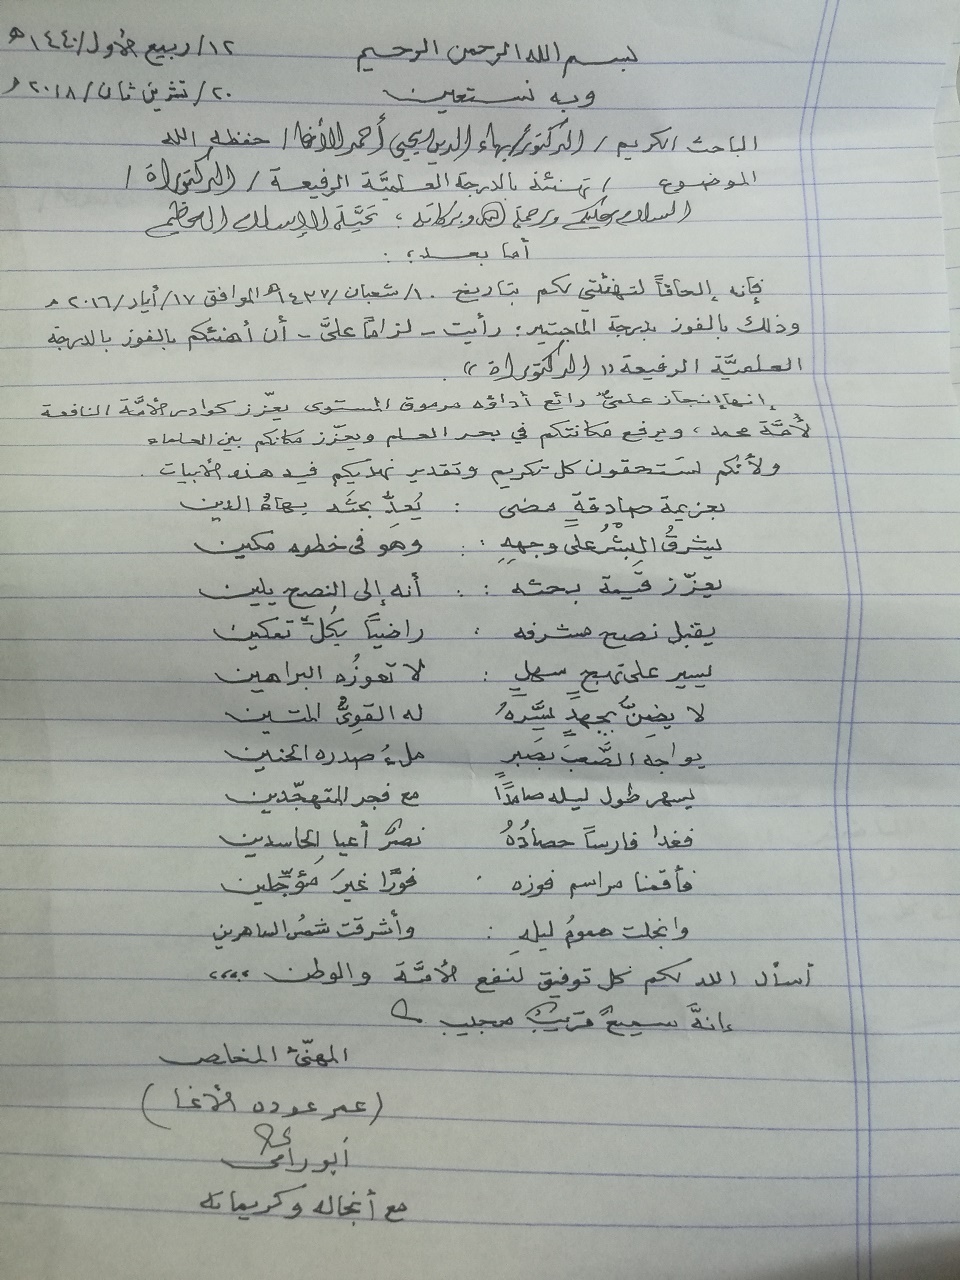 بسم الله الرحمن الرحيم ١٢/ربيع الأول/١٤٤٠هـ
وبه نستعين ٢٠/تشرين ثان/٢٠١٨م
الباحث الكريم / الدكتور/بهاء الدين يحيى أحمد الأغا/ حفظه الله
الموضوع / تهنئة بالدرجة العلميَّة الرفيعة / الدكتوراة /
السلام عليكم ورحمة الله وبركاته ؛ تحيَّة الإسلام العظيم
أما بعد ؛ :
فإنه إلحاقاً لتهنئتي لكم بتاريخ ١٠/شعبان/١٤٣٧هـ الموافق ١٧/أيار/٢٠١٦م
وذلك بالفوز بدرجة الماجتير ؛ رأيت - لزاماً عليَّ - أن أهنئكم بالفوز بالدرجة
العلميَّة الرفيعة "الدكتوراة" .
إنها إنجاز علميٌّ رائع أداؤه مرموق المستوى يعزّز كوادر الأمَّة النافعة
لأُمَّة محمد ، ويرفع مكانتكم في بحر العلم ويعزّز مكانكم بين العلماء
ولأنكم تستحقون كل تكريم وتقدير نهديكم فيه هذه الأبيات .
بعزيمة صادقةٍ مضى : يُعِدُّ بحثَه بهاءُ الدين
يشرقُ البِشْرُ على وجههِ : وهو في خطوه مكين
يعزّز قيمة بحثه : أنه إلى النصح يلين
يقبل نصح مشرفه : راضياً بكُلِّ تمكين
يسير على نهجٍ سهلٍ : لا تعوزُه البراهين
لا يضِنُّ بجهدٍ يسَّرهُ له القوِيُّ المتين
يواجه الصَّعبَ بصبرٍ ملءُ صدره الحنين
يسهر طول ليله صامدًا مع فجر المتهجّدين
فغدا فارساً حصادُهُ نصرٌ أعيا الحاسدين
فأقمنا مراسم فوزه فورًا غيرَ مؤجِّلين
وانجلت همومُ ليلهِ : وأشرقت شمسُ الساهرين
أسأل الله لكم كل توفيق لنفع الأمَّة والوطن ،،،،
إنهَّ سميعٌ قريبٌ مجيب
المهنّئ المخلص
(عمر عوده الأغا)
أبو رامي
مع أنجاله وكريماته